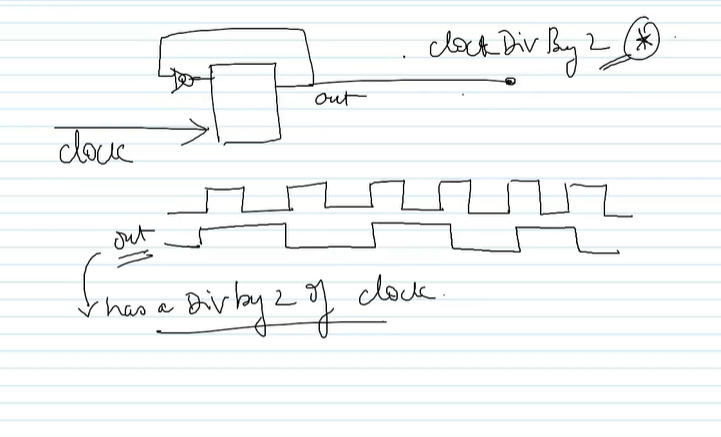 clock Div By 2 *
out
clock
out
has a Div by 2 of clock.